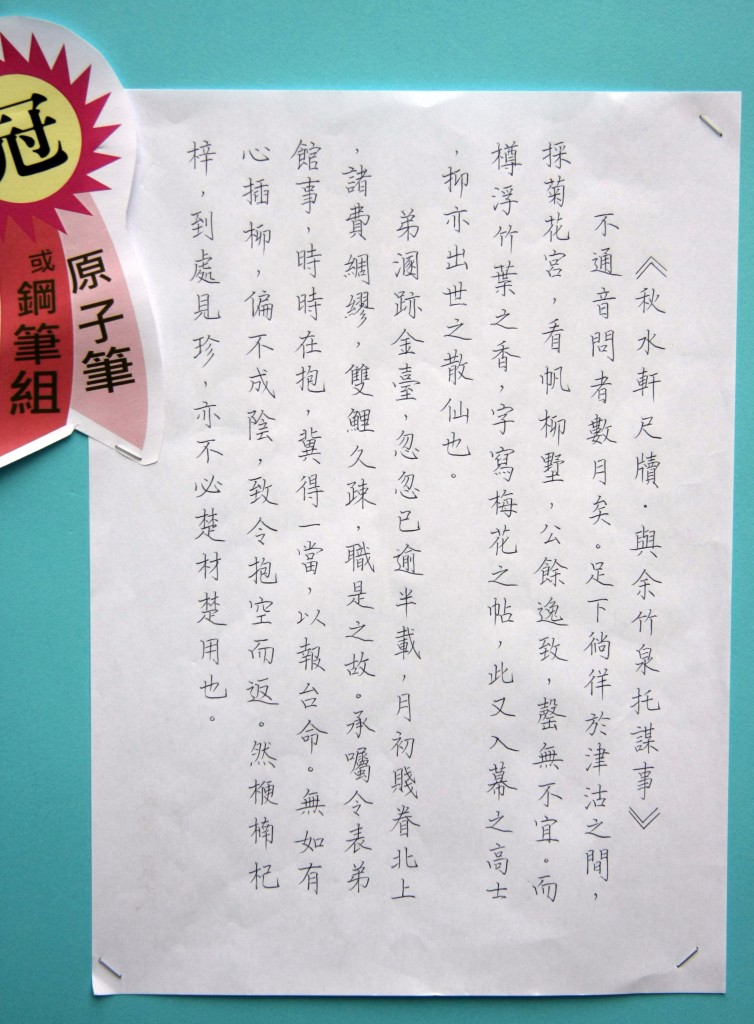 《秋水軒尺牘．與余竹泉托謀事》
不通音問者數月矣。足下徜徉於津沽之間，
採菊花宮，看帆柳墅，公餘逸致，罄無不宜。而
樽浮竹葉之香，字寫梅花之帖，此又入幕之高士
，抑亦出世之散仙也。
弟溷跡金臺，忽忽已逾半載，月初賤眷北上
，諸費綢繆，雙鯉久疎，職是之故。承囑令表弟
館事，時時在抱，冀得一當，以報台命。無如有
心插柳，偏不成陰，致令抱空而返。然楩楠杞
梓，到處見珍，亦不必楚材楚用也。
冠
原子筆
或鋼筆組